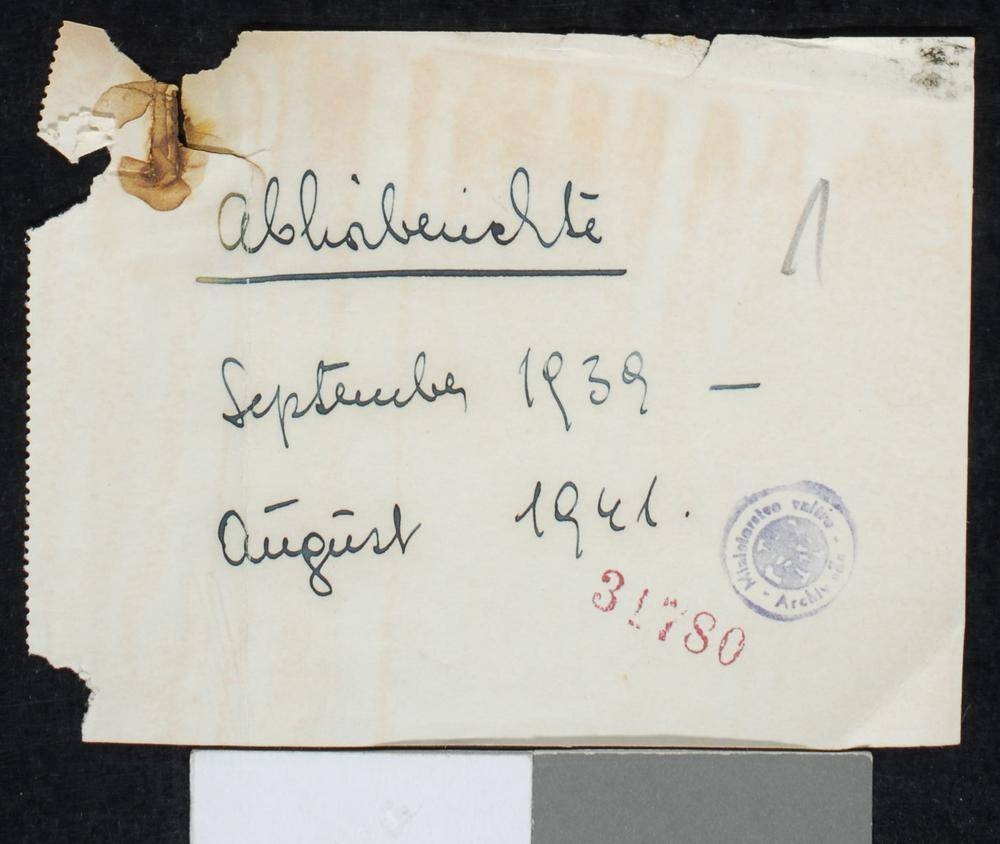 Abhörberichte
1
September 1939 —
August 1941.
Ministerstvo vnitra - Archiv
31780